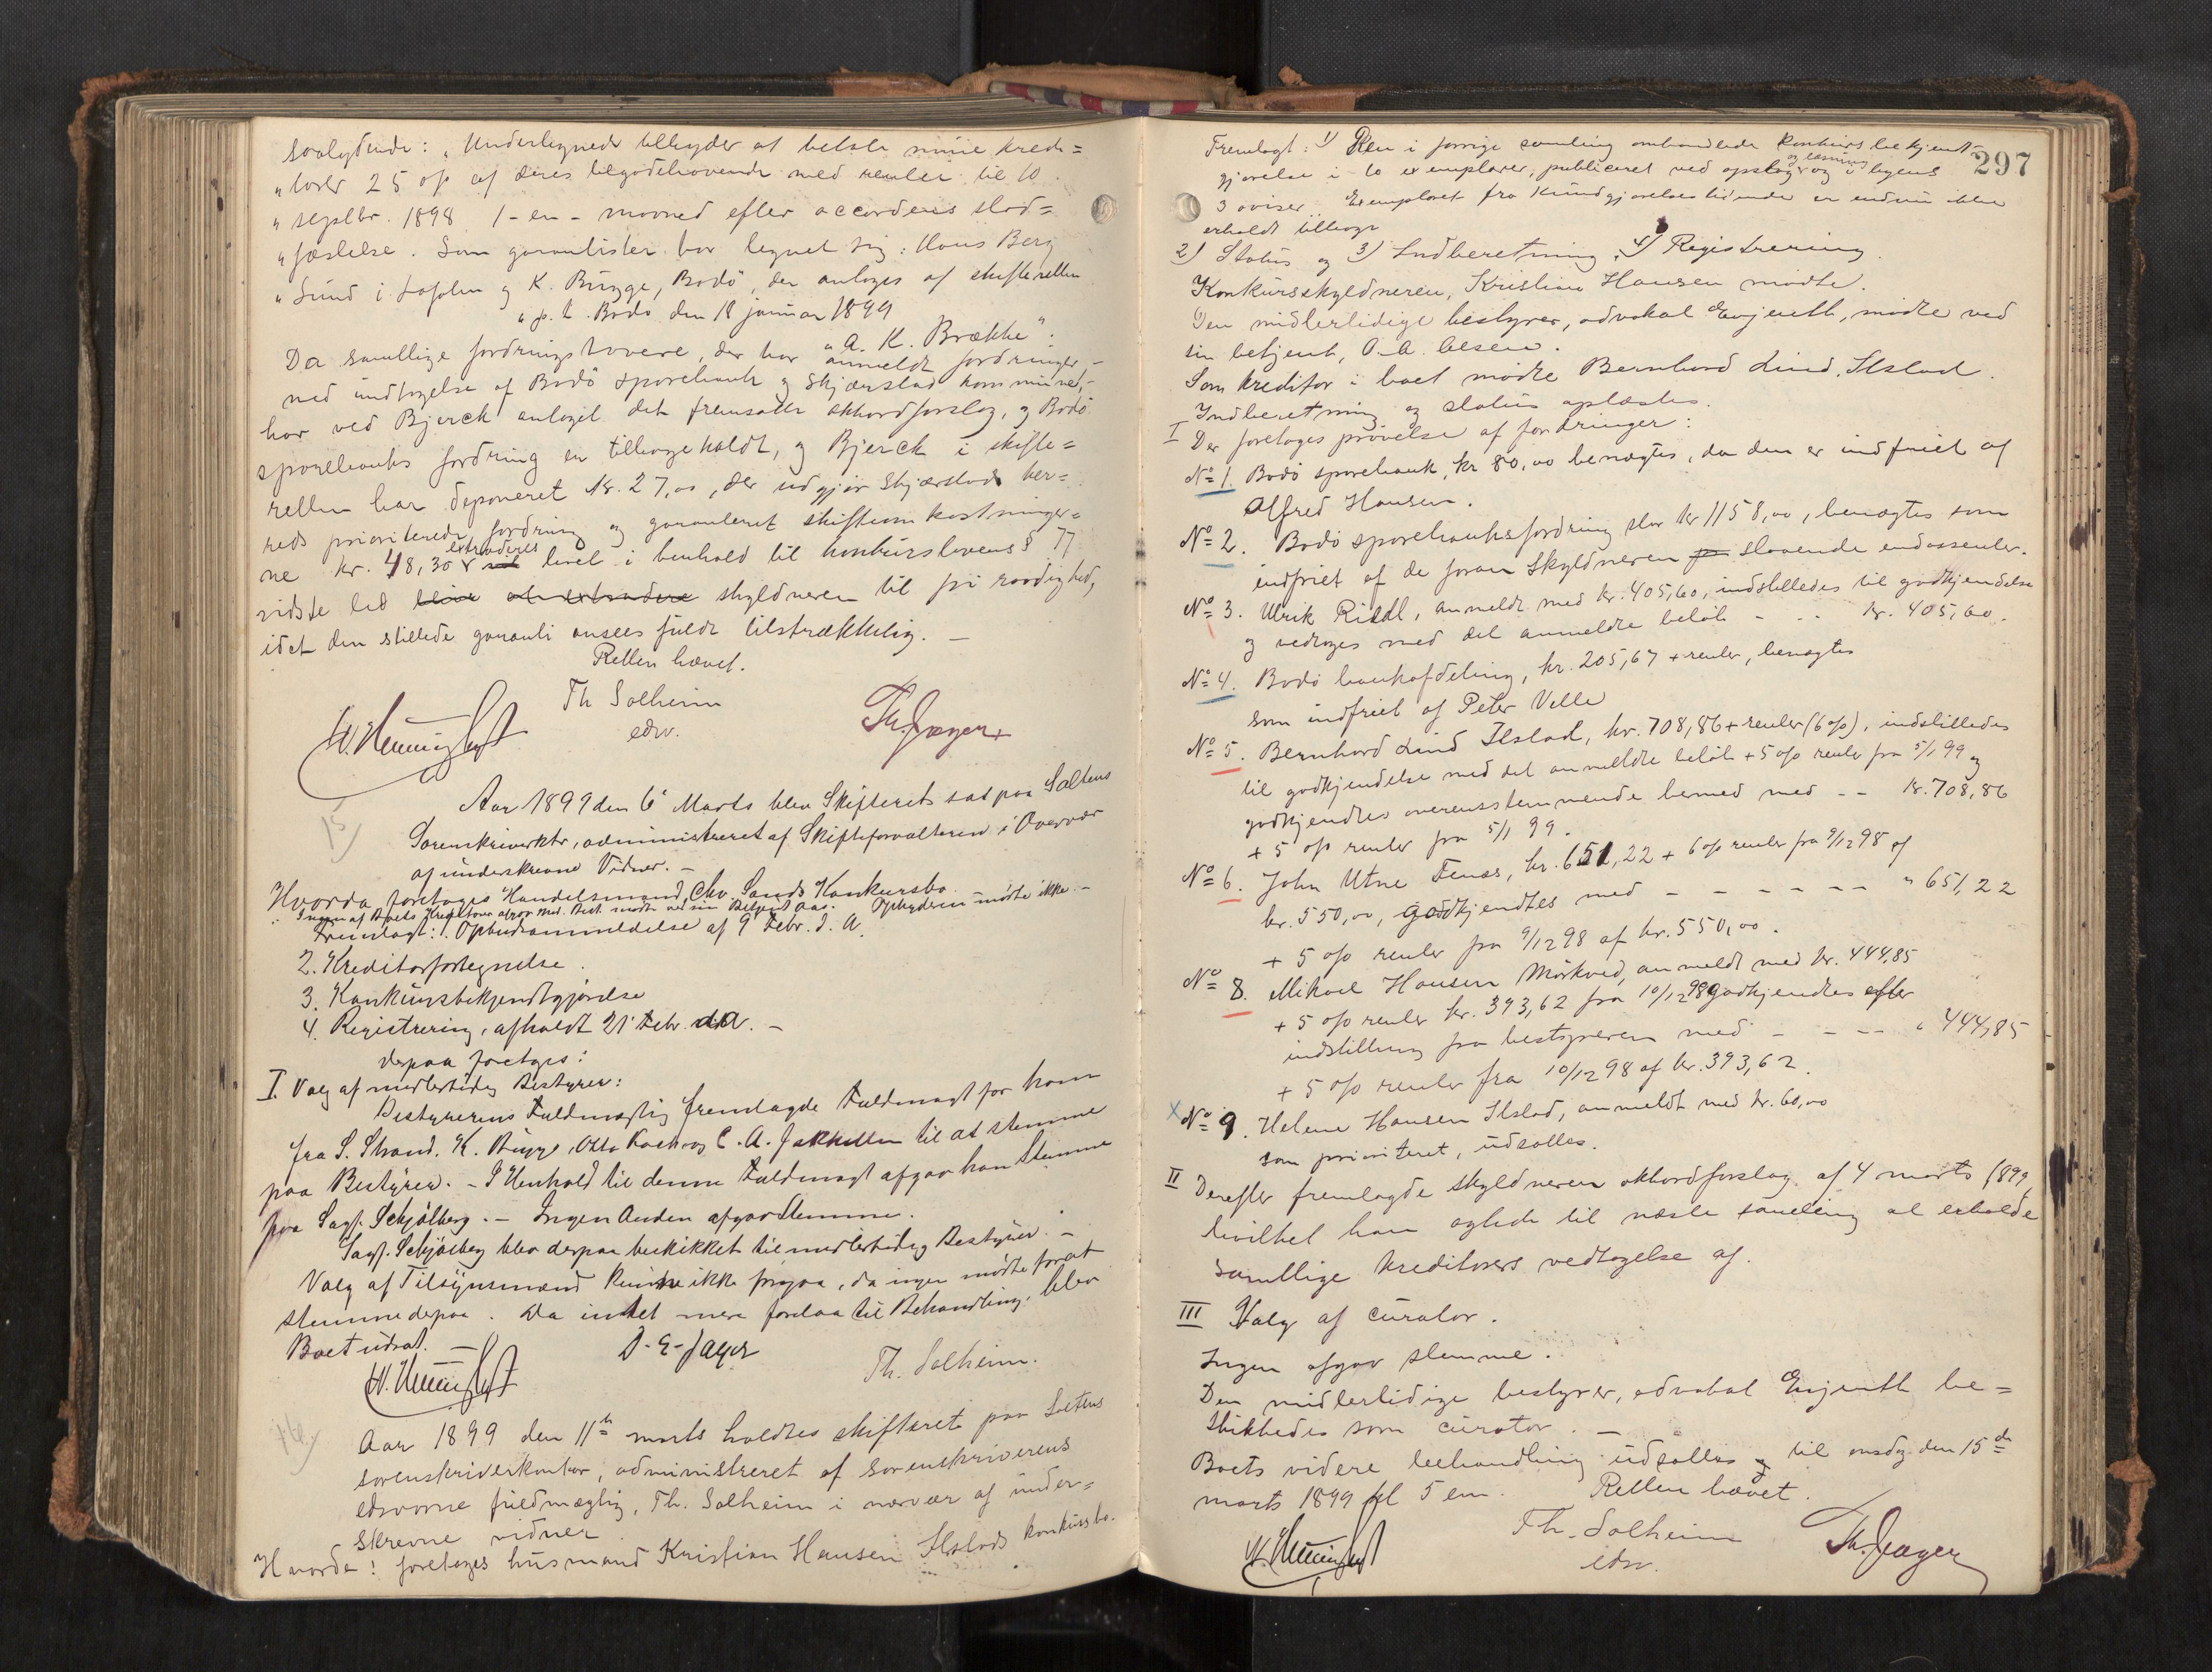 saalydende: "Undertegnede tilbyder at betale mine kredi=
"torer 25 o/o af deres tilgodehavende med renter til 10
"septbr. 1898 1 - en - maaned efter accordens stad=
"fæstelse. Som garantister har tegnet sig: Hans Berg
"Sund i Lofoten og K. Bugge, Bodö, der antages af skifteretten
"p. t. Bodö den 18 januar 1899
"A. K. Brække".
Da samtlige fordringshavere, der har anmeldt fordringer -
med undtagelse af Bodö sparebank og Skjærstad kommune, -
har ved Bjerck antaget det fremsatte akkordforslag, og Bodö
sparebanks fordring er tilbagekaldt, og Bjerck i skifte=
retten har deponeret kr. 27,00, der udgjør Skjærstad her=
reds prioriterede fordring og garanteret skifteomkostninger=
ne kr. 48,30 extraderes boet i henhold til konkurslovens § 77
sidste led skyldneren til fri raadighed,
idet den stillede garanti ansees fuldt tilstrækkelig. -
Retten hævet.
Th Solheim
edsv.
Th. Jæger
15)
Aar 1899 den 6' Marts blev Skifteret sat paa Saltens
Sorenskriverktr, administreret af Skifteforvalteren i Overvær
af underskrevne Vidner. -
Hvorda foretoges Handelsmand Chr. Sands Konkursbo.
Ingen af Boets Kreditorer Mid. Best. mødte ved sin Betjent Aas. Opbyderen mødte ikke -
Fremlagt: 1. Opbudsanmeldelse af 9 Febr. d. A.
2. Kreditorfortegnelse.
3. Konkursbekjendtgjørelse
4. Registrering, afholdt 21' Febr. d. A. -
derpaa foretoges:
I. Valg af midlertidig Bestyrer:
Bestyrerens Fuldmægtig fremlagde Fuldmagt for ham
fra S. Strand, K. Bugge, Otto Koch og C. A. Jakhelln til at stemme
paa Bestyrer. - I Henhold til denne Fuldmagt afgav han Stemme
paa Sagf. Schjølberg. - Ingen Anden afgav Stemme.
Sagf. Schjølberg blev derpaa beskikket til midlertidig Bestyrer. -
Valg af Tilsynsmænd kunde ikke foregaa, da ingen mødte forat
stemme derpaa. Da intet mere forelaa til Behandling, blev
Boet udsat. -
D. E. Jager
Th. Solheim.
16)
Aar 1899 den 11te marts holdtes skifteret paa Saltens
sorenskriverkontor, administreret af sorenskriverens
edsvorne fuldmægtig, Th. Solheim i nærvær af under=
skrevne vidner
Hvorda! foretoges husmand Kristian Hansen Ilstads konkursbo.
297
Fremlagt: 1) Den i forrige samling ombandlede konkursbekjendt-
gjørelse i to exemplarer, publiceret ved opslag og læsning og i byens
3 aviser. Exemplaret fra Kundgjørelsestidende er endnu ikke
erholdt tilbage
2) Status og 3) Indberetning, 4) Registrering.
Konkursskyldneren, Kristian Hansen mødte.
Den midlertidige bestyrer, advokat Evjenth, mødte ved
sin betjent, O. A. Olsen.
Som kreditor i boet mødte Bernhard Lind, Ilstad.
Indberetning og status oplæstes.
I Der foretoges prövelse af fordringer:
No 1. Bodö sparebank, kr 80,00 benægtes, da den er indfriet af
Alfred Hansen.
No 2. Bodö sparebanksfordring stor kr 1158,00, benægtes som
indfriet af de foran skyldneren staaende endossenter.
No 3. Ulrik Riddl, anmeldt med kr. 405,60, indstilledes til godkjendelse
og vedtoges med det anmeldte beløb - - kr. 405,60.
No 4. Bodö bankafdeling, kr. 205,67 + renter, benægtes
som indfriet af Peter Velle
No 5. Bernhard Lind Ilstad, kr. 708,86 + renter (6 o/o), indstilledes
til godkjendelse med det anmeldte beløb + 5 o/o rente fra 5/1 99 og
godkjendtes overensstemmende hermed med - - kr. 708,86
+ 5 o/o renter fra 5/1 99.
No 6. John Utne Fenes, kr. 651,22 + 6 o/o renter fra 9/12 98 af
kr. 550,00, godkjendtes med - - - - - - " 651,22
+ 5 o/o renter fra 9/12 98 af kr. 550,00.
No 8. Mikael Hansen Mörkved, anmeldt med kr. 444,85
+ 5 o/o renter kr. 393,62 fra 10/12 98 godkjendtes efter
indstilling fra bestyreren med - - - - " 444,85
+ 5 o/o renter fra 10/12 98 af kr. 393,62.
x No 9. Helene Hansen Ilstad, anmeldt med kr. 60,00
som prioriteret, udsattes.
II Derefter fremlagde skyldneren akkordforslag af 4 marts 1899,
hvilket han agtede til næste samling at erholde
samtlige kreditorers vedtagelse af.
III Valg af curator.
Ingen afgav stemme.
Den midlertidige bestyrer, advokat Evjenth be=
skikkedes som curator. -
Boets videre behandling udsattes til onsdag den 15de
marts 1899 kl 5 em. Retten hævet.
Th. Solheim
edsv.
Th. Jæger